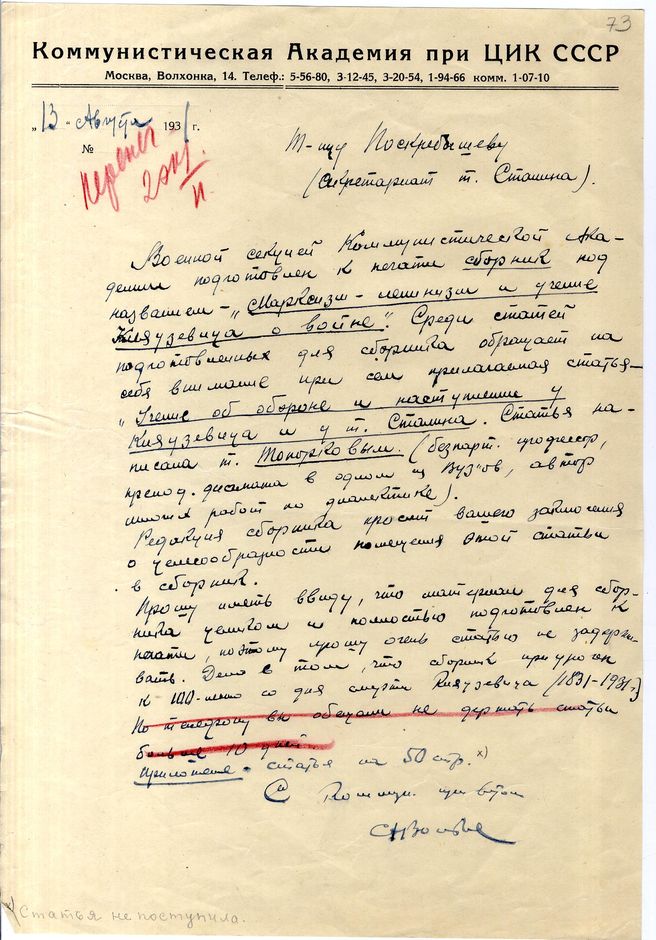 73
Коммунистическая Академия при ЦИК СССР
Москва, Волхонка, 14. Телеф.: 5-56-80, 3-12-45, 3-20-54, 1-94-66 комм. 1-07-10
„13" Августа 1931 г.
№
Т-щу Поскребышеву
(Секретариат т. Сталина).
Военной секцией Коммунистической Ака-
демии подготовлен к печати сборник под
названием - „Марксизм-ленинизм и учение
Клаузевица о войне". Среди статей
подготовленных для сборника обращает на
себя внимание при сем прилагаемая статья-
„Учение об обороне и наступлении у
Клаузевица и у т. Сталина. Статья на-
писана т. Топорковым. (беспарт. профессор,
препод. диамата в одном из Вуз'ов, автор
многих работ по диалектике).
Редакция сборника просит вашего заключения
о целесообразности помещения этой статьи
в сборник.
Прошу иметь ввиду, что материал для сбор-
ника целиком и полностью подготовлен к
печати, поэтому прошу очень статью не задержи-
вать. Дело в том, что сборник приурочен
к 100-летию со дня смерти Клаузевица (1831-1931 г.)
По телефону вы обещали не держать статьи
больше 10 дней.
Приложение - статья на 50 стр. x)
С Коммун. приветом
x) Статья не поступила.